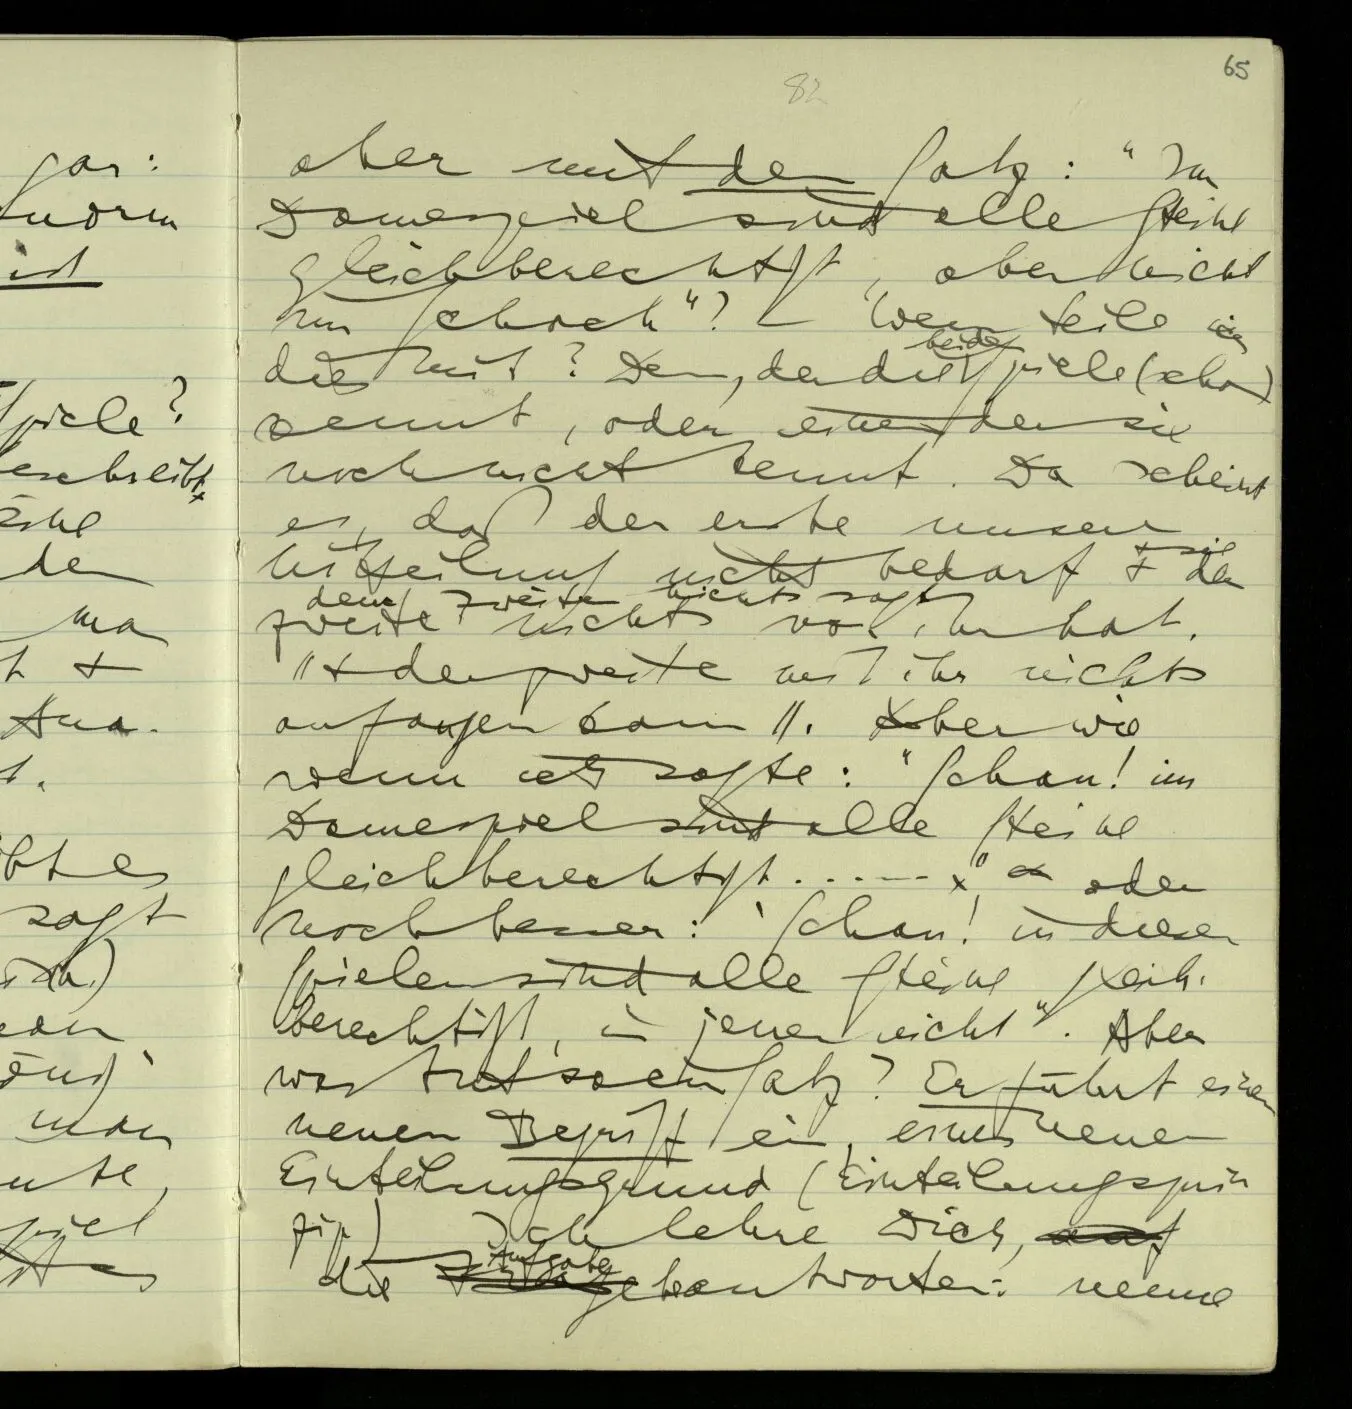 65
82
gar:
ist
aber mit dem Satz: "Im
Damespiel sind alle Steine
gleichberechtigt, aber nicht
im Schach"? – Wem teile ich
dies mit? Dem, der die beiden Spiele (schon)
kennt, oder einem der sie
noch nicht kennt. Da scheint
es, daß der erste unserer
Mitteilung nicht bedarf & sie
dem zweiten nichts sagt
der zweite nichts von ihr hat.
// & der zweite mit ihr nichts
anfangen kann //. Aber wie
wenn ich sagte: "Schau! im
Damespiel sind alle Steine
gleichberechtigt . . . . . ." oder
noch besser: "Schau! in diesen
Spielen sind alle Steine gleich-
berechtigt, in jenen nicht". Aber
was tut so ein Satz? Er führt einen
neuen Begriff ein, einen neuen
Einteilungsgrund (Einteilungsprin
zip) Ich lehre Dich, auf
die Aufgabe beantworten: nenne
Spiele?
beschreibt
den
man
&
gibt es
sagt
man
Spiel